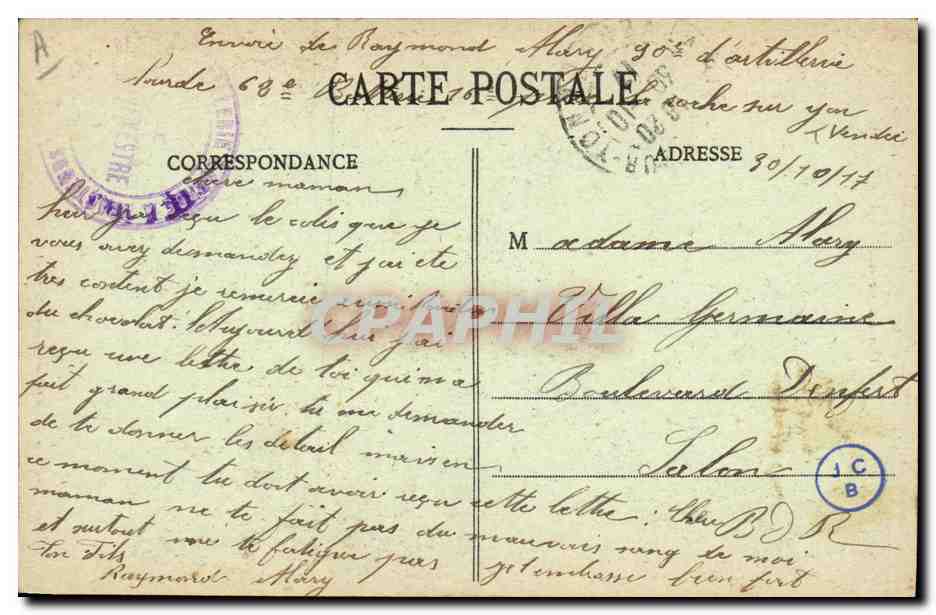 A
Envoi de Raymond Alary 90e d'artillerie
Lourde 68e 16e la roche sur yon
CARTE POSTALE
(Vendée
CORRESPONDANCE
ADRESSE
30/10/17
chère maman
hier j'ai reçu le colis que je
vous avez demandez et j'ai été
M adame Alary
tres content je remercie
CPAPHIL
Villa Germaine
du chocolat. Aujourd hui j'ai
reçu une lettre de toi qui m'a
Boulevard Denfert
fait grand plaisir. tu me demander
de te donner les détail mais en
Salon
J C B
ce moment tu doit avoir reçu cette lettre: Chere
B D R
maman ne te fait pas du mauvais sang de moi
et surtout ne te fatigue pas
je t'embrasse bien fort
Ton Fils
Raymond Alary